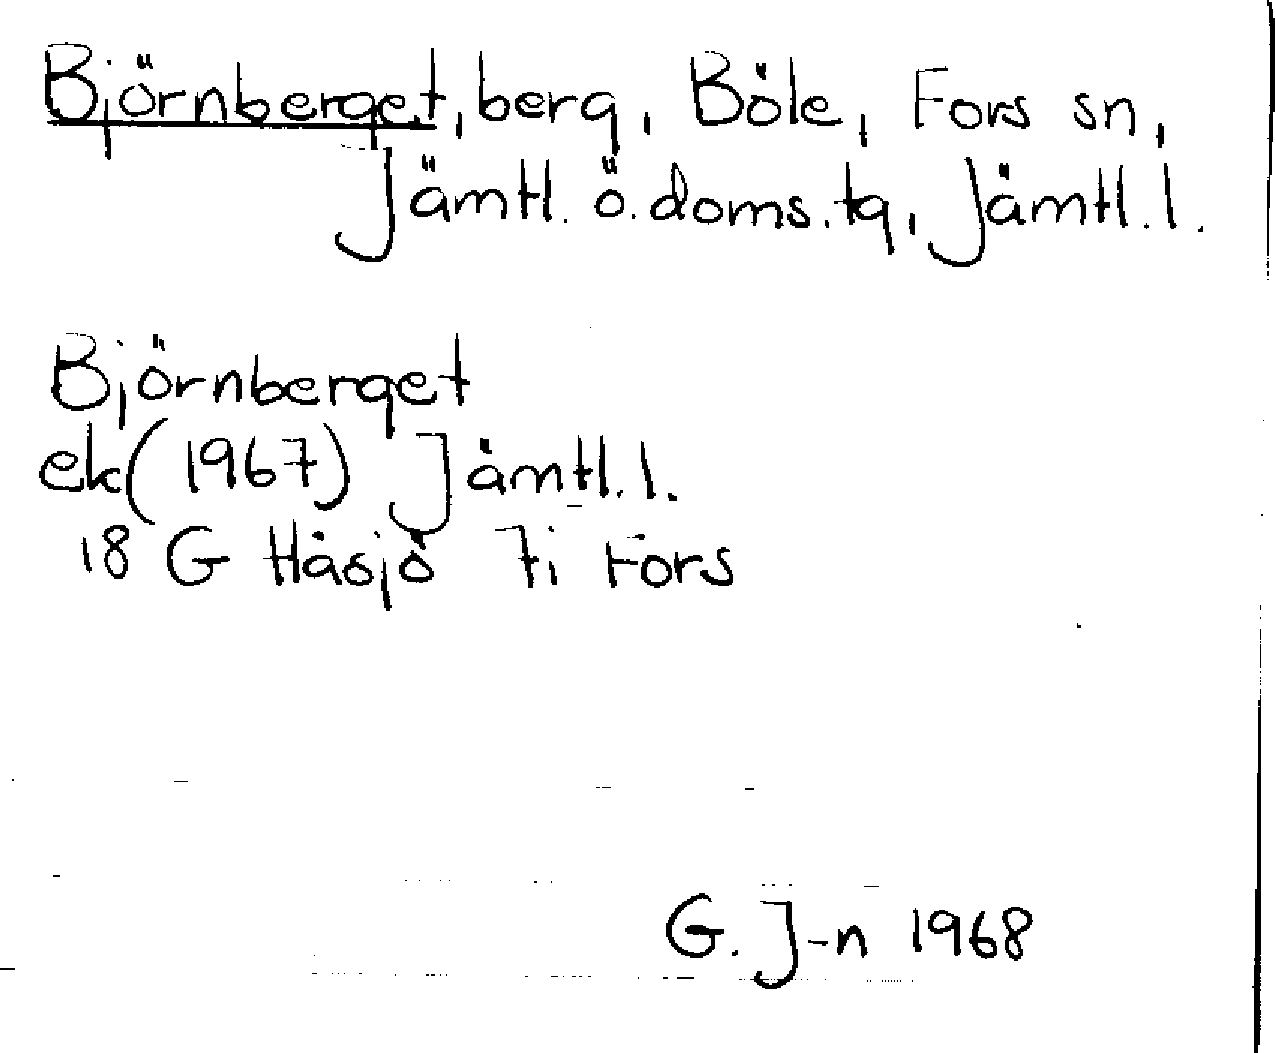 Björnberget, berg, Böle, Fors sn,
Jämtl. ö. doms. tg, Jämtl. l.
Björnberget
ek (1967) Jämtl. l.
18 G Håsjö 7i Fors
G. J-n 1968